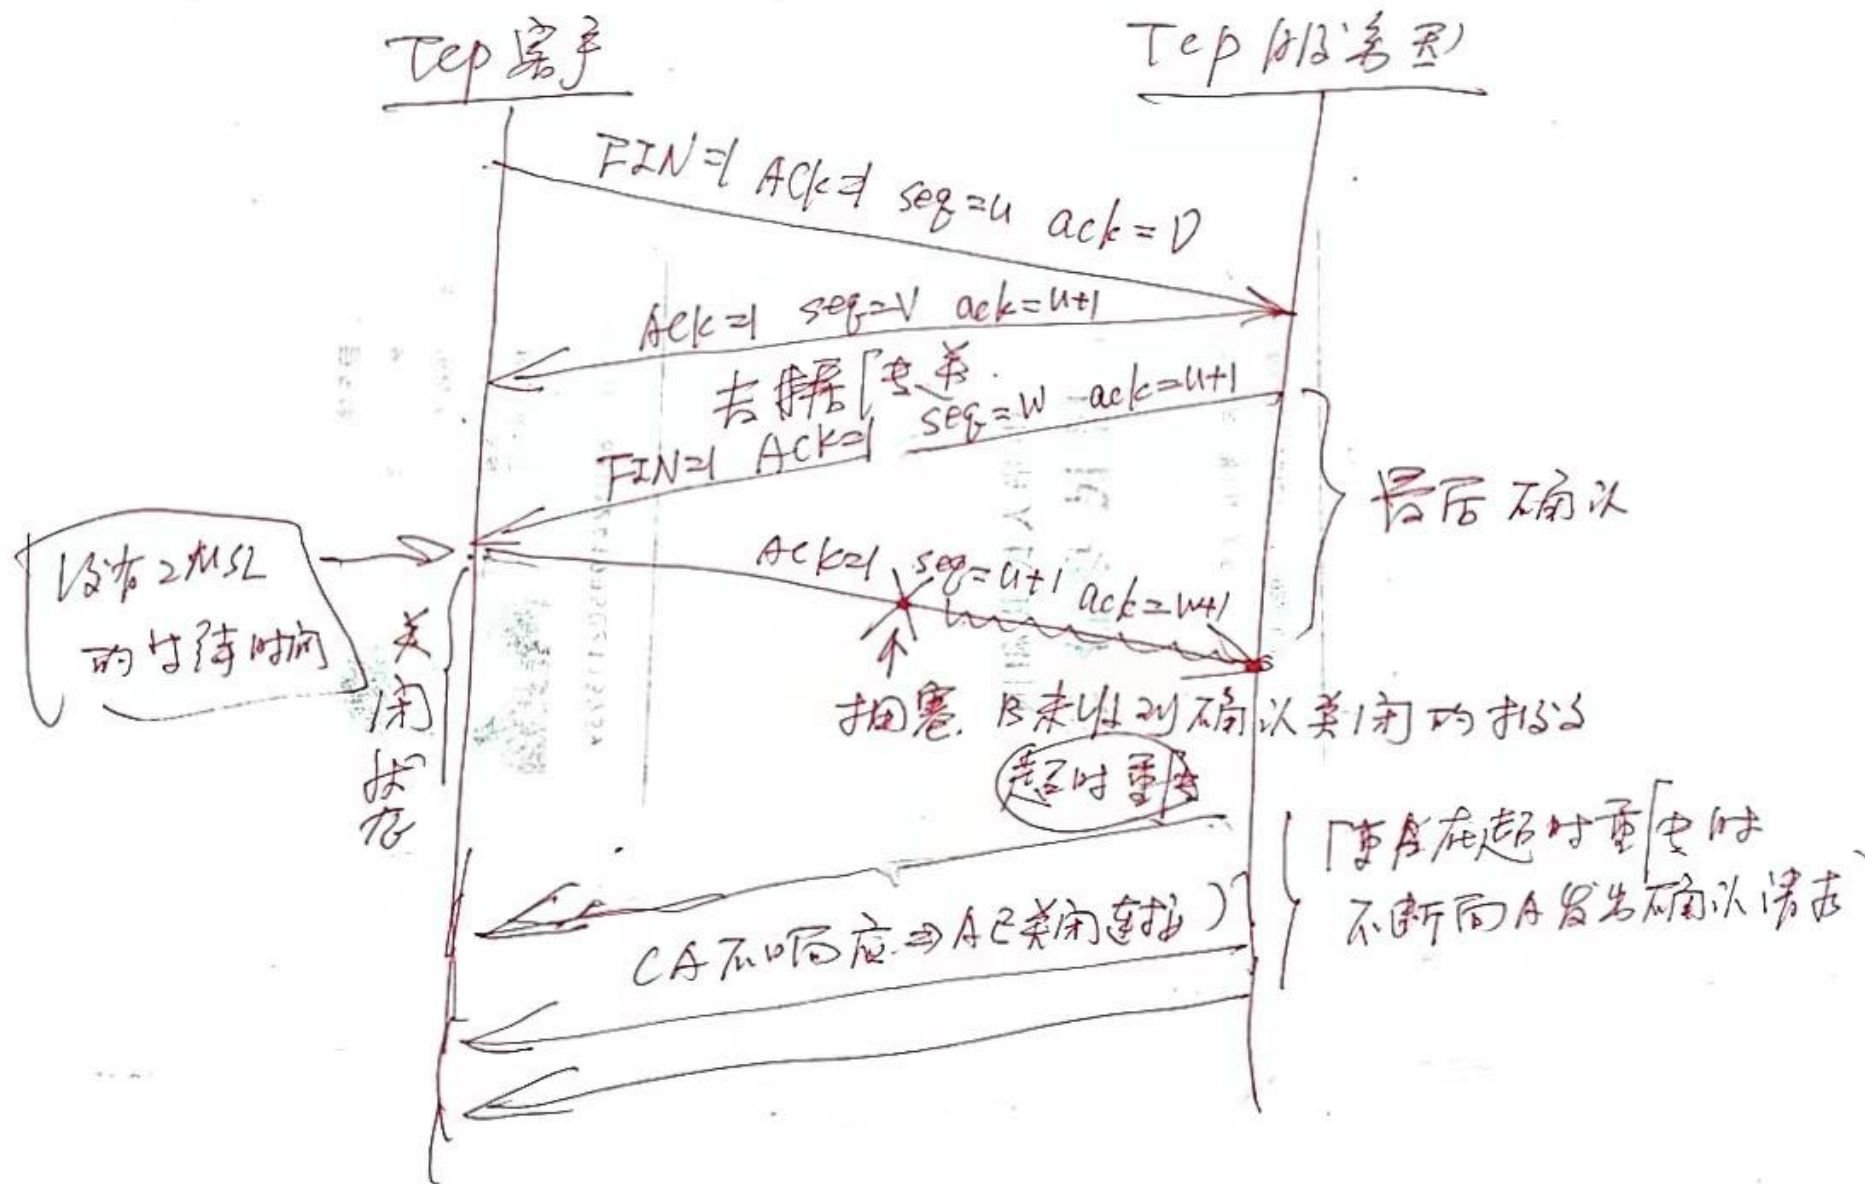 Tcp 客户
Tcp 服务器
FIN=1 ACK=1 seq=u ack=V
ACK=1 seq=V ack=u+1
seq=W ack=u+1
FIN=1 ACK=1
最后确认
没有2MSL
的等待时间
关闭状态
ACK=1 seq=u+1 ack=w+1
拥塞. B未收到确认关闭的报文
超时重传
(A不响应⇒A已关闭连接)
在超时重传时
不断向A发出确认请求